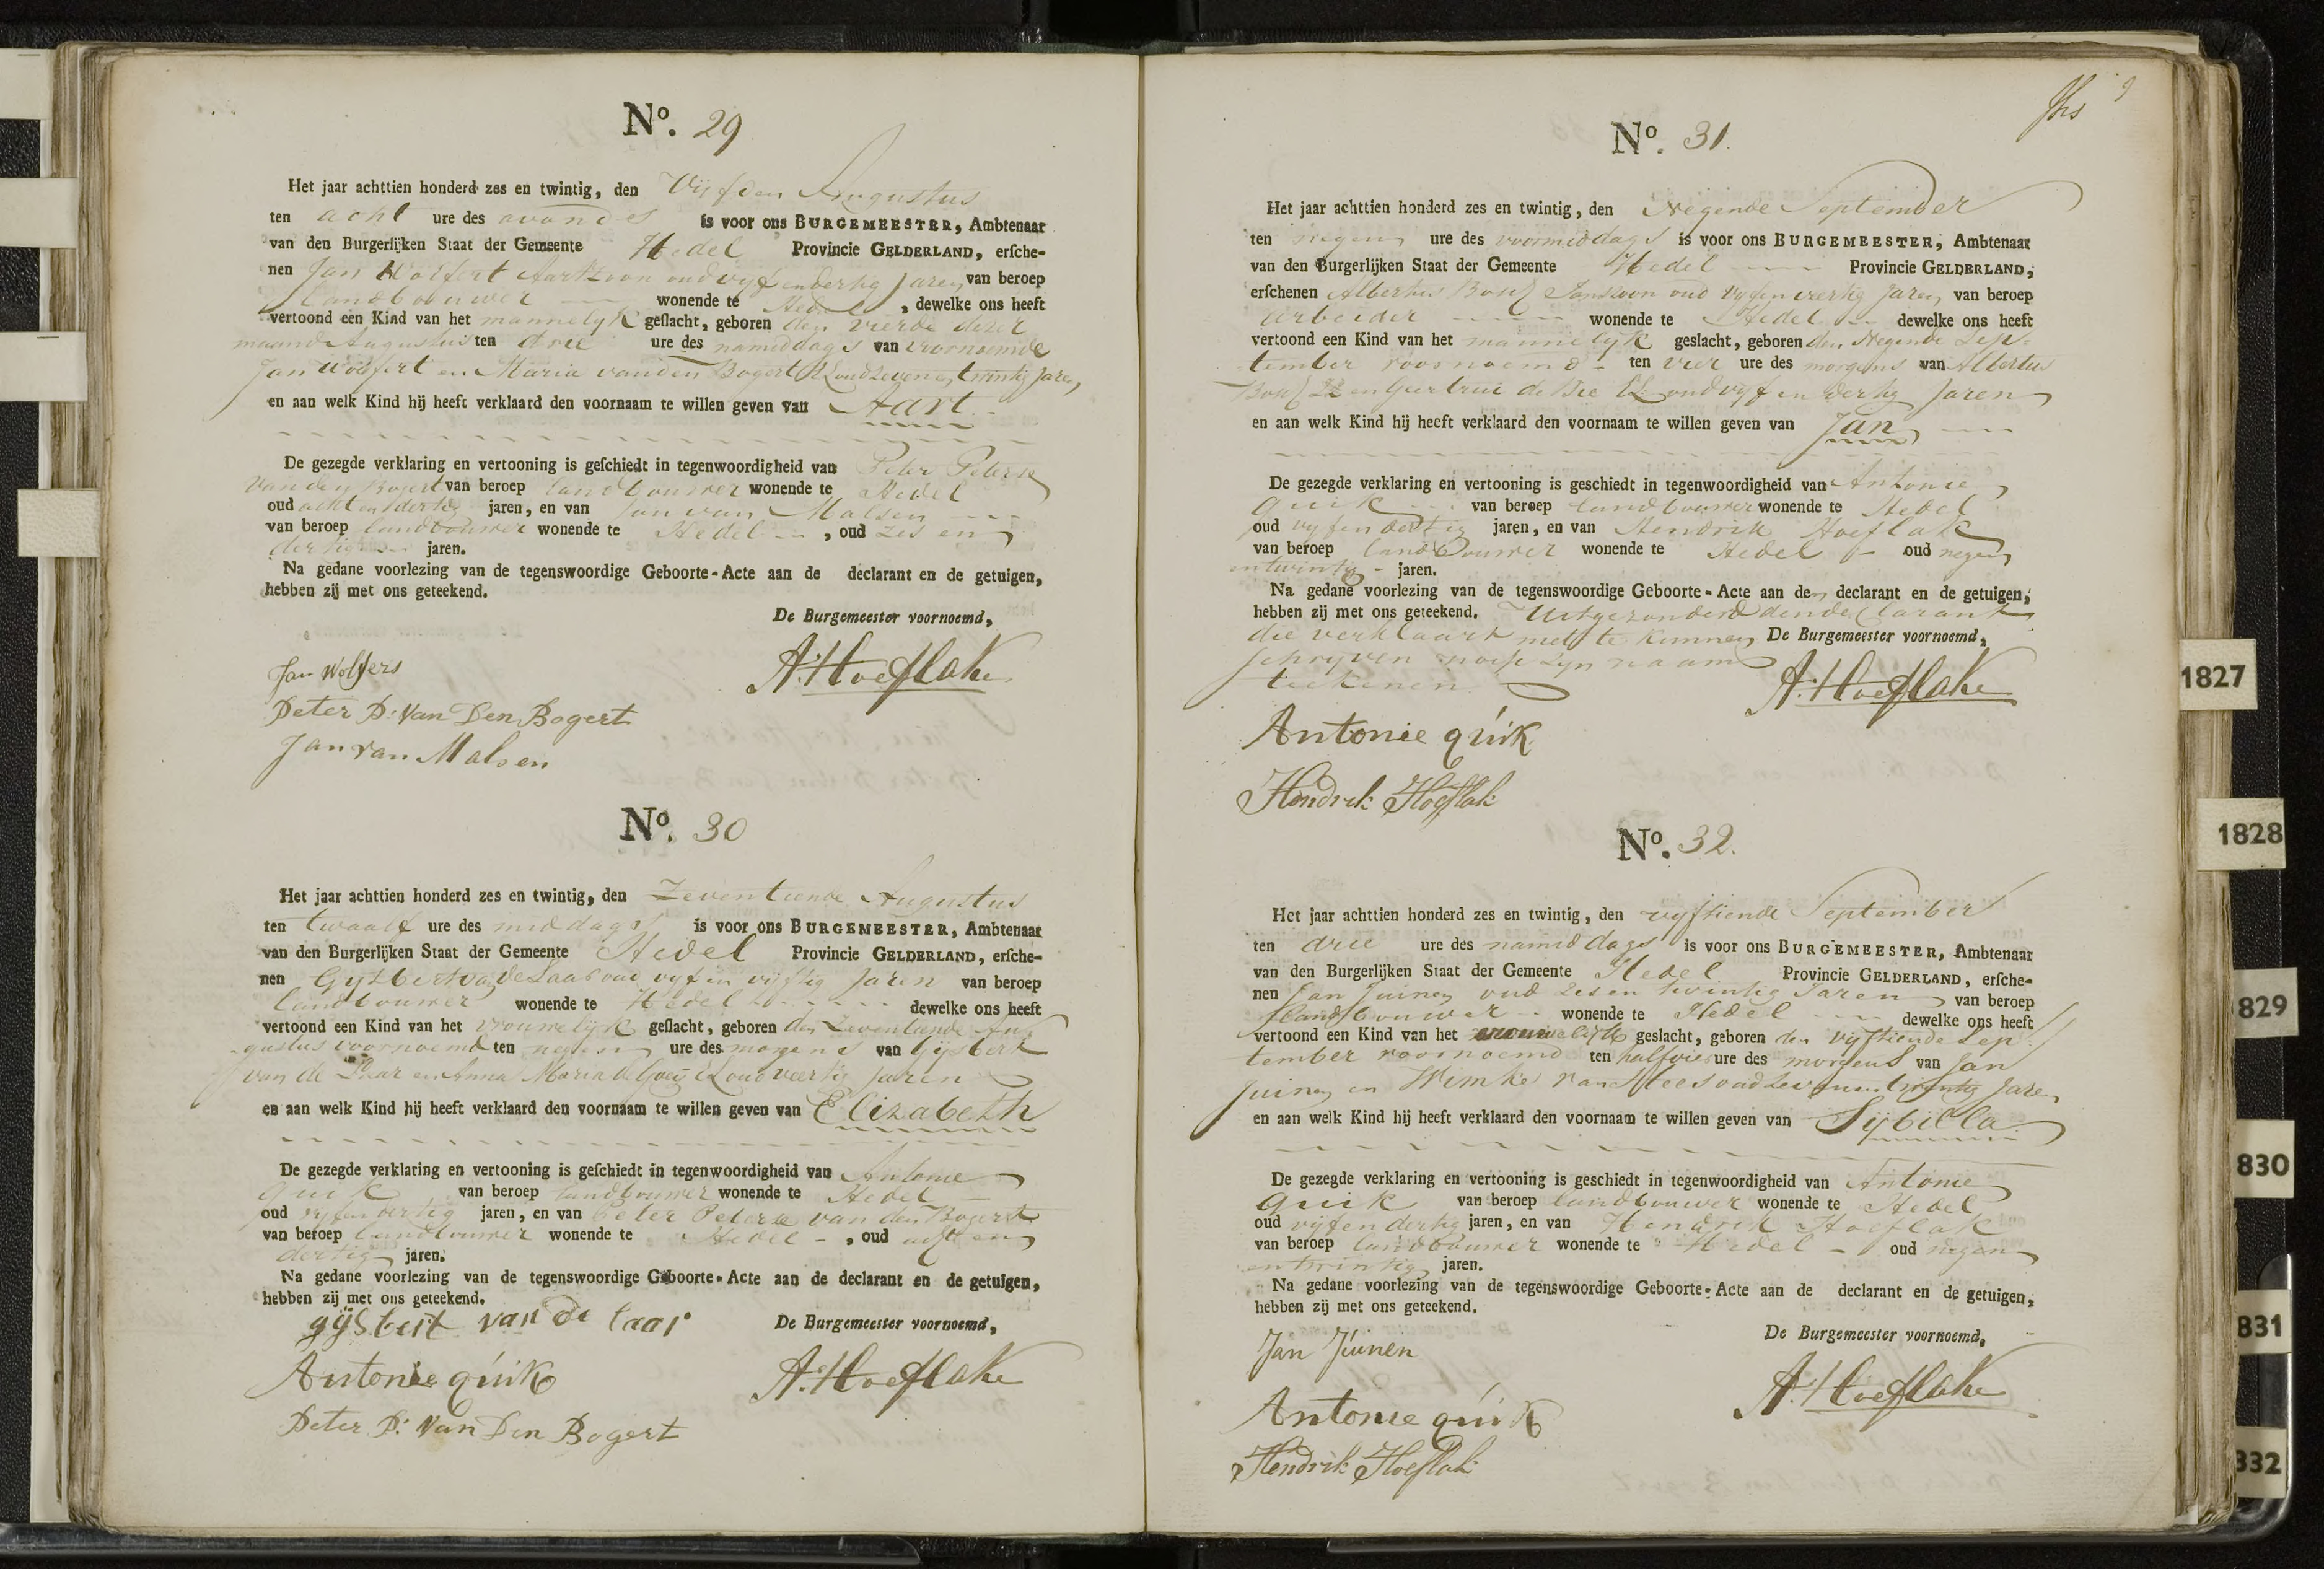 No. 29
Het jaar achttien honderd zes en twintig, den Vijfden Augustus
ten acht ure des avonds is voor ons BURGEMEESTER, Ambtenaar
van den Burgerlijken Staat der Gemeente Hedel Provincie GELDERLAND, ersche-
nen Jan Wolfert Aartzoon oud vyf en dertig Jaren van beroep
landbouwer wonende te Hedel, dewelke ons heeft
vertoond een Kind van het mannelyk geslacht, geboren den vierde dezer
maand Augustus ten drie ure des namiddags van voornoemde
Jan Wolfert en Maria van den Bogert EL oud zeven en twintig Jaren
en aan welk Kind hij heeft verklaard den voornaam te willen geven van Aart
De gezegde verklaring en vertooning is geschiedt in tegenwoordigheid van Peter Peterse
van den Bogert van beroep landbouwer wonende te Hedel
oud acht en dertig jaren, en van Jan van Malsen
van beroep landbouwer wonende te Hedel, oud zes en
dertig jaren.
Na gedane voorlezing van de tegenswoordige Geboorte-Acte aan de declarant en de getuigen,
hebben zij met ons geteekend.
De Burgemeester voornoemd,
Jan Wolfers
A. Hoeflake
Peter P: Van Den Bogert
Jan van Malsen
No. 30
Het jaar achttien honderd zes en twintig, den Zeventiende Augustus
ten twaalf ure des middags is voor ons BURGEMEESTER, Ambtenaar
van den Burgerlijken Staat der Gemeente Hedel Provincie GELDERLAND, ersche-
nen Gysbert van de Laar oud vyf en vijftig Jaren van beroep
landbouwer wonende te Hedel dewelke ons heeft
vertoond een Kind van het vrouwelyk geslacht, geboren den Zeventiende Au-
gustus voornoemd ten negen ure des morgens van Gijsbert
van de Laar en Anna Maria de Goeij EL oud veertig Jaren
en aan welk Kind hij heeft verklaard den voornaam te willen geven van Elizabeth
De gezegde verklaring en vertooning is geschiedt in tegenwoordigheid van Antonie
quik van beroep landbouwer wonende te Hedel
oud vyf en dertig jaren, en van Peter Peterse van den Bogert
van beroep landbouwer wonende te Hedel -, oud acht en
dertig jaren.
Na gedane voorlezing van de tegenswoordige Geboorte-Acte aan de declarant en de getuigen,
hebben zij met ons geteekend.
gijsbert van de laar
De Burgemeester voornoemd,
Antonie quik
A. Hoeflake
Peter P: Van Den Bogert
9
No. 31.
Het jaar achttien honderd zes en twintig, den Negende September
ten negen ure des voormiddags is voor ons BURGEMEESTER, Ambtenaar
van den Burgerlijken Staat der Gemeente Hedel Provincie GELDERLAND,
erschenen Albertus Janszoon oud vyf en veertig Jaren van beroep
arbeider wonende te Hedel dewelke ons heeft
vertoond een Kind van het mannelyk geslacht, geboren den Negende Sep-
tember voornoemd - ten vier ure des morgens van Albertus
en Geertrui de Bie EL oud vyf en dertig Jaren
en aan welk Kind hij heeft verklaard den voornaam te willen geven van Jan
De gezegde verklaring en vertooning is geschiedt in tegenwoordigheid van Antonie
quik van beroep landbouwer wonende te Hedel
oud vyf en dertig jaren, en van Hendrik Hoeflak
van beroep landbouwer wonende te Hedel - oud negen
en twintig - jaren.
Na gedane voorlezing van de tegenswoordige Geboorte-Acte aan den declarant en de getuigen,
hebben zij met ons geteekend. Uitgezonderd den declarant
die verklaart niet te kunnen De Burgemeester voornoemd,
schryven nogh zyn naam
teekenen.
A. Hoeflake
Antonie quik
Hendrik Hoeflak
No. 32.
Het jaar achttien honderd zes en twintig, den vyftiende September
ten drie ure des namiddags is voor ons BURGEMEESTER, Ambtenaar
van den Burgerlijken Staat der Gemeente Hedel Provincie GELDERLAND, ersche-
nen Jan Juinen oud zes en twintig Jaren van beroep
landbouwer wonende te Hedel dewelke ons heeft
vertoond een Kind van het vrouwelijk geslacht, geboren den vijftiende Sep-
tember voornoemd ten half vier ure des morgens van Jan
Juinen en Wemke van Stees oud zeven en twintig Jaren
en aan welk Kind hij heeft verklaard den voornaam te willen geven van Sijbilla
De gezegde verklaring en vertooning is geschiedt in tegenwoordigheid van Antonie
quik van beroep landbouwer wonende te Hedel
oud vijf en dertig jaren, en van Hendrik Hoeflak
van beroep landbouwer wonende te Hedel - oud negen
en twintig jaren.
Na gedane voorlezing van de tegenswoordige Geboorte-Acte aan de declarant en de getuigen,
hebben zij met ons geteekend.
De Burgemeester voornoemd,
Jan Juinen
A. Hoeflake
Antonie quik
Hendrik Hoeflak
1827
1828
829
830
831
332